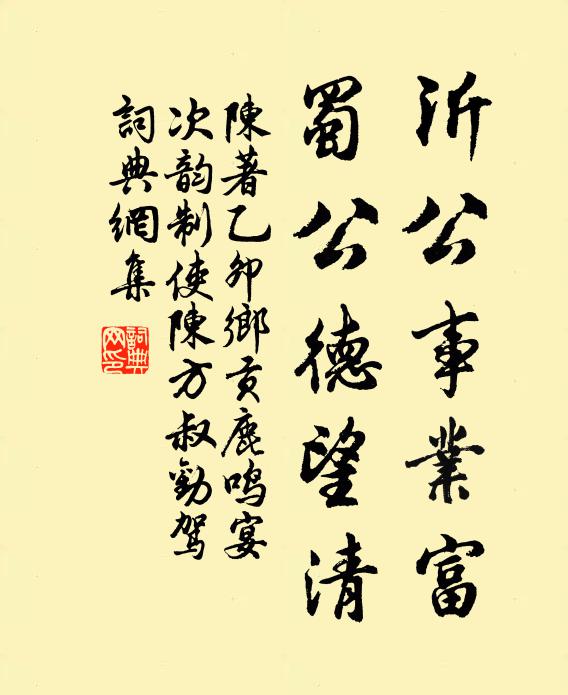 沂公事業富
蜀公德望清
陳著乙卯鄉貢鹿鳴宴
次韵制使陳方叔勸駕
詞典網集
詞典網印